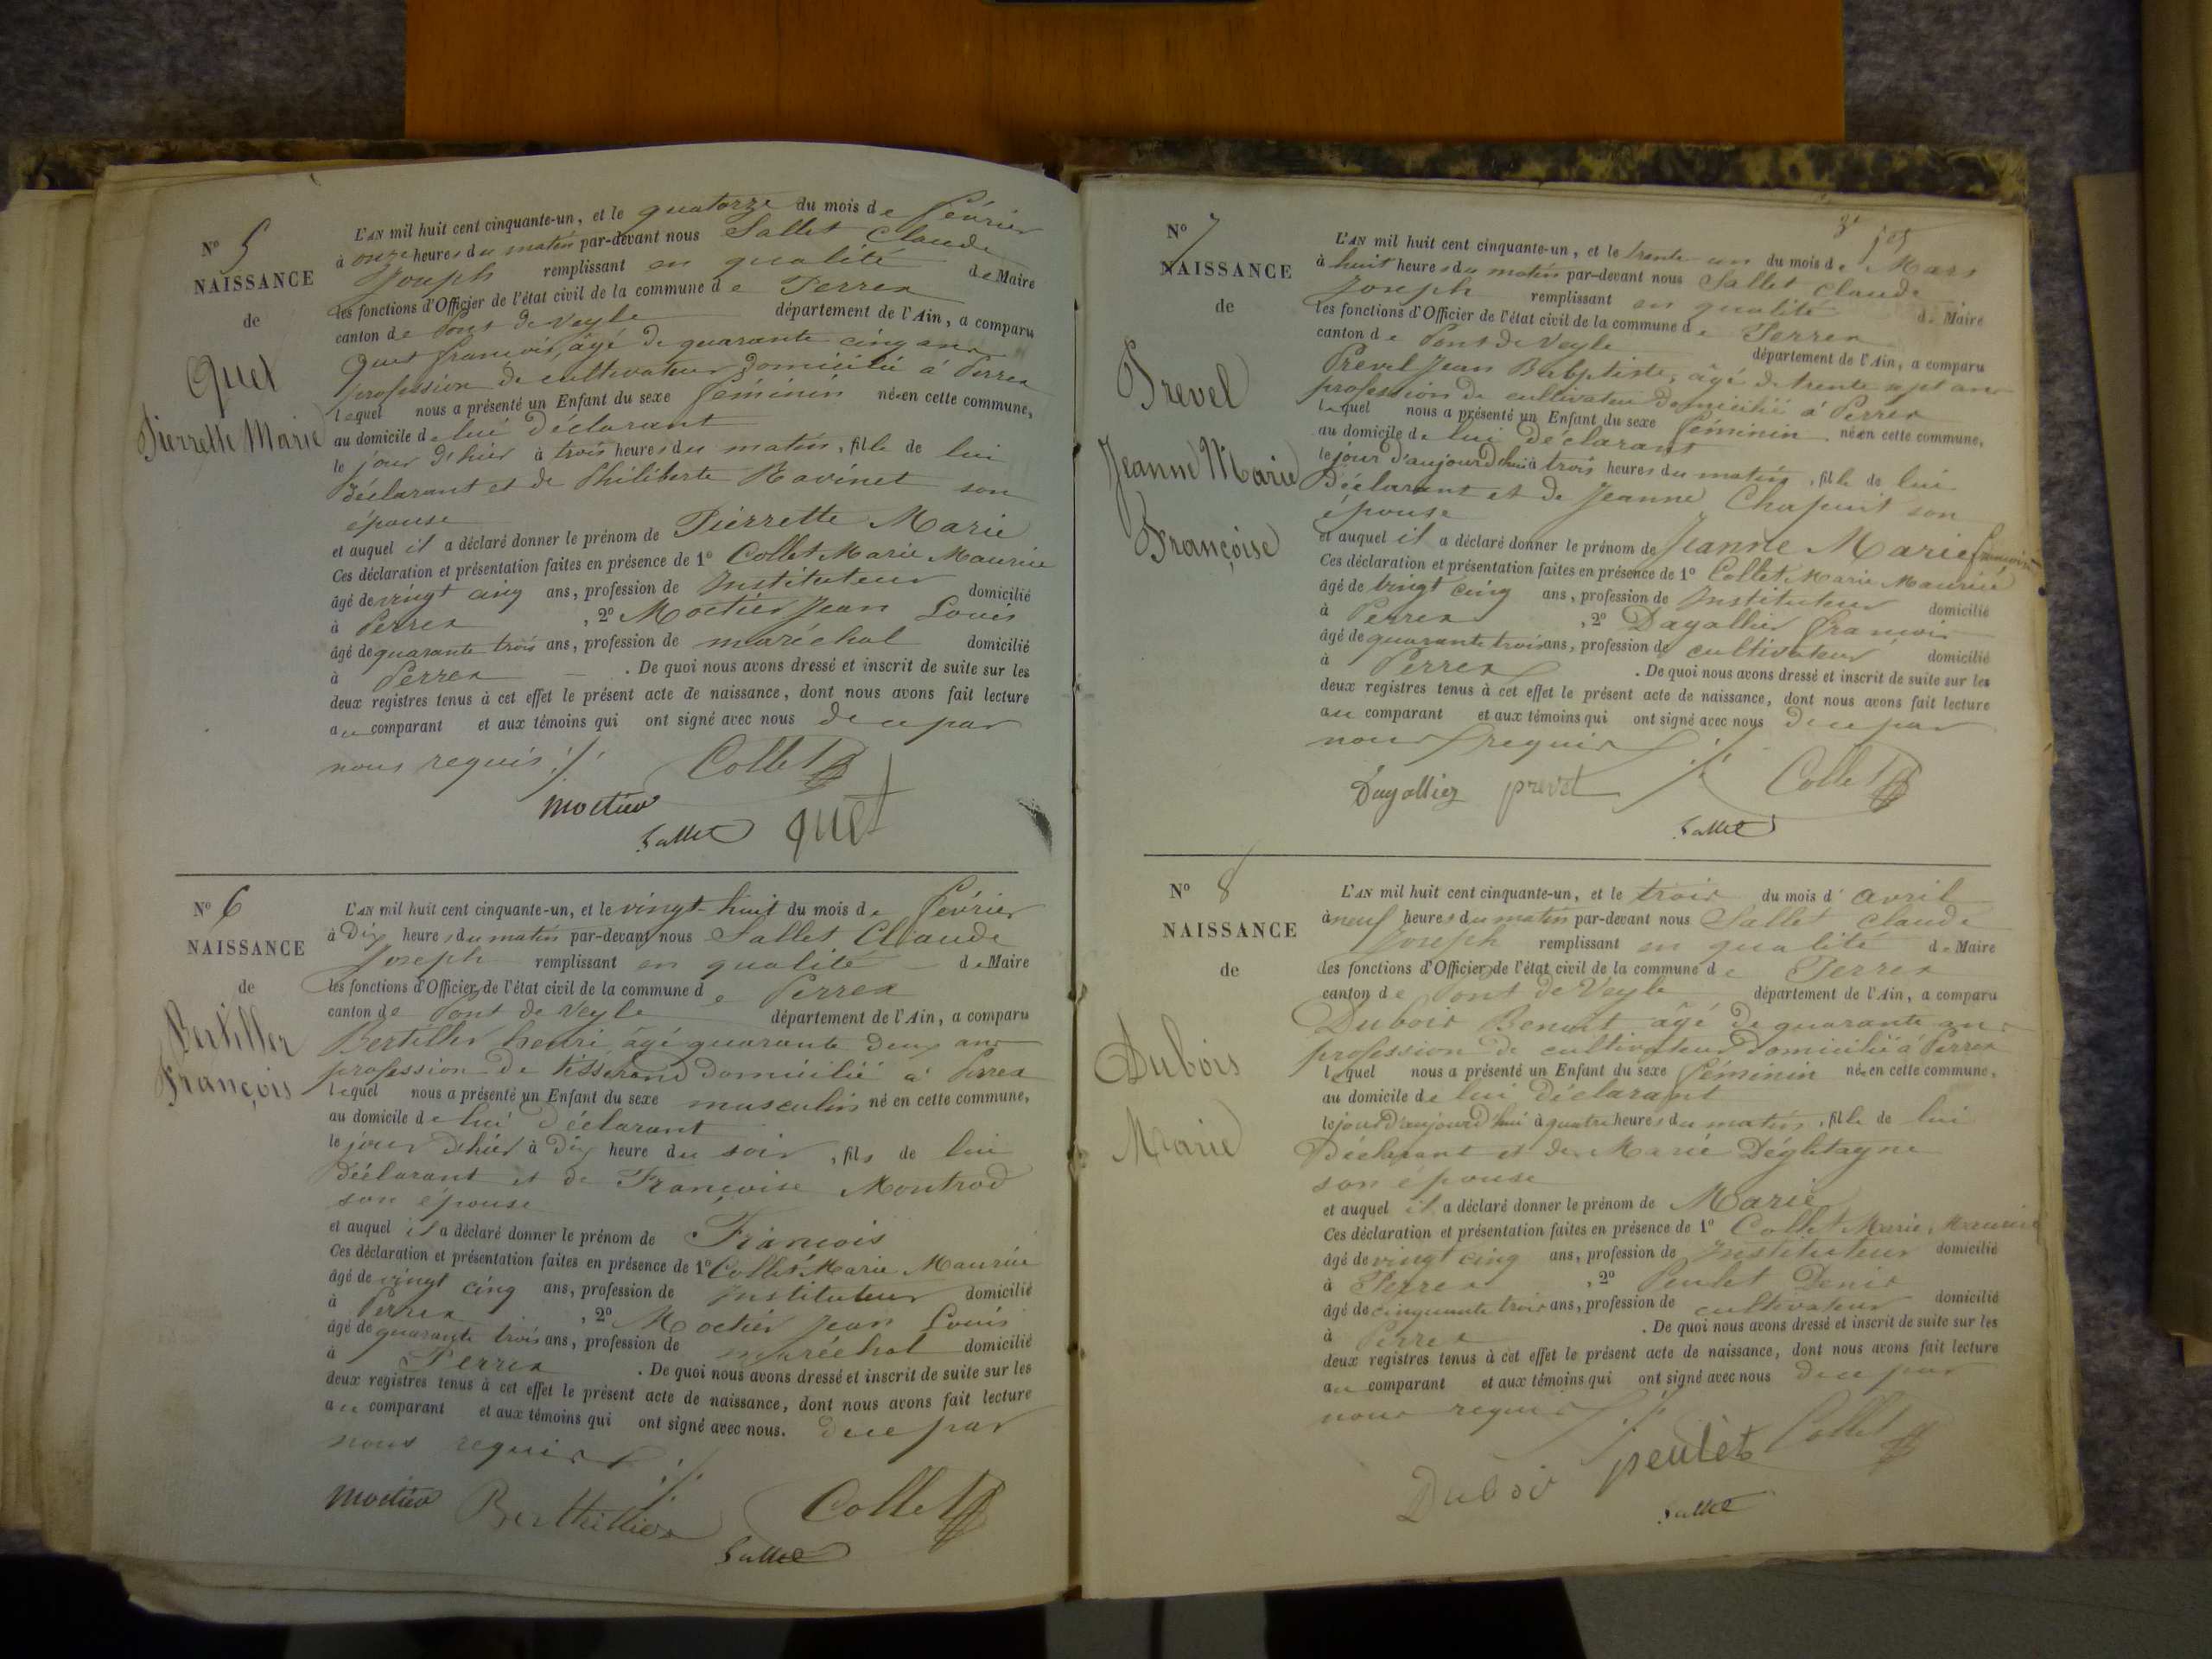 N° 5
NAISSANCE
de
Quet
Pierrette Marie
L'AN mil huit cent cinquante-un, et le quatorze du mois de février
à onze heures du matin par-devant nous Sallet Claude
Joseph remplissant en qualité de Maire
les fonctions d'Officier de l'état civil de la commune de Perrex
canton de Pont de Veyle département de l'Ain, a comparu
Quet françois, âgé de quarante cinq ans
profession de cultivateur domicilié à Perrex
lequel nous a présenté un Enfant du sexe féminin née en cette commune,
au domicile de lui déclarant
le jour d'hier à trois heures du matin, fille de lui
déclarant et de Philiberte Ravinet son
épouse
et auquel il a déclaré donner le prénom de Pierrette Marie
Ces déclaration et présentation faites en présence de 1° Collet Marie Maurice
âgé de vingt cinq ans, profession de Instituteur domicilié
à Perrex , 2° Moctier Jean Louis
âgé de quarante trois ans, profession de maréchal domicilié
à Perrex . De quoi nous avons dressé et inscrit de suite sur les
deux registres tenus à cet effet le présent acte de naissance, dont nous avons fait lecture
au comparant et aux témoins qui ont signé avec nous de ce par
nous requis ./.
Collet
moctier
Sallet quet
N° 6
NAISSANCE
de
Bertiller
François
L'AN mil huit cent cinquante-un, et le vingt-huit du mois de février
à Dix heures du matin par-devant nous Sallet Claude
Joseph remplissant en qualité de Maire
les fonctions d'Officier de l'état civil de la commune de Perrex
canton de Pont de Veyle département de l'Ain, a comparu
Bertiller henri âgé quarante deux ans
profession de tisserand domicilié à Perrex
lequel nous a présenté un Enfant du sexe masculin né en cette commune,
au domicile de lui déclarant
le jour d'hier à Dix heure du soir, fils de lui
déclarant et de Françoise Montrod
son épouse
et auquel il a déclaré donner le prénom de François
Ces déclaration et présentation faites en présence de 1° Collet Marie Maurice
âgé de vingt cinq ans, profession de Instituteur domicilié
à Perrex , 2° Moctier Jean Louis
âgé de quarante trois ans, profession de maréchal domicilié
à Perrex . De quoi nous avons dressé et inscrit de suite sur les
deux registres tenus à cet effet le présent acte de naissance, dont nous avons fait lecture
au comparant et aux témoins qui ont signé avec nous. de ce par
nous requis ./.
moctier Berthillier Collet
Sallet
N° 7
NAISSANCE
de
Prevel
Jeanne Marie
Françoise
L'AN mil huit cent cinquante-un, et le trente un du mois de Mars
à huit heures du matin par-devant nous Sallet Claude
Joseph remplissant en qualité de Maire
les fonctions d'Officier de l'état civil de la commune de Perrex
canton de Pont de Veyle département de l'Ain, a comparu
Prevel Jean Babptiste, âgé de trente sept ans
profession de cultivateur domicilié à Perrex
lequel nous a présenté un Enfant du sexe féminin née en cette commune,
au domicile de lui déclarant
le jour d'aujourd'hui à trois heures du matin, fille de lui
Déclarant et de Jeanne Chapuit son
épouse
et auquel il a déclaré donner le prénom de Jeanne Marie françoise
Ces déclaration et présentation faites en présence de 1° Collet Marie Maurice
âgé de vingt cinq ans, profession de Instituteur domicilié
à Perrex , 2° Dagallier françois
âgé de quarante trois ans, profession de cultivateur domicilié
à Perrex . De quoi nous avons dressé et inscrit de suite sur les
deux registres tenus à cet effet le présent acte de naissance, dont nous avons fait lecture
au comparant et aux témoins qui ont signé avec nous de ce par
nous requis ./.
Dagallier prevel Collet
Sallet
N° 8
NAISSANCE
de
Dubois
Marie
L'AN mil huit cent cinquante-un, et le trois du mois d'avril
à neuf heures du matin par-devant nous Sallet Claude
Joseph remplissant en qualité de Maire
les fonctions d'Officier de l'état civil de la commune de Perrex
canton de Pont de Veyle département de l'Ain, a comparu
Dubois Benoit âgé de quarante ans
profession de cultivateur domicilié à Perrex
lequel nous a présenté un Enfant du sexe féminin née en cette commune,
au domicile de lui déclarant
le jour d'aujourd'hui à quatre heures du matin, fille de lui
Déclarant et de Marie Dégletagne
son épouse
et auquel il a déclaré donner le prénom de Marie
Ces déclaration et présentation faites en présence de 1° Collet Marie Maurice
âgé de vingt cinq ans, profession de Instituteur domicilié
à Perrex , 2° Peulet Denis
âgé de cinquante trois ans, profession de cultivateur domicilié
à Perrex . De quoi nous avons dressé et inscrit de suite sur les
deux registres tenus à cet effet le présent acte de naissance, dont nous avons fait lecture
au comparant et aux témoins qui ont signé avec nous de ce par
nous requis ./.
Duboi peulet Collet
Sallet